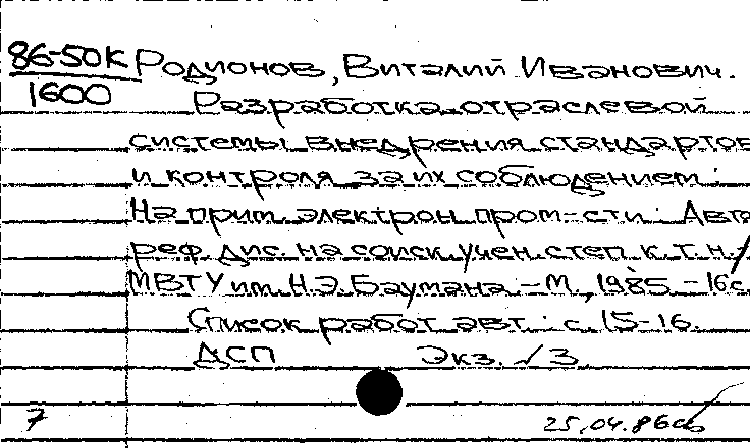 86-50К Родионов, Виталий Иванович.
1600 Разработка отраслевой
системы внедрения стандартов
и контроля за их соблюдением:
На прим. электрон. пром-сти: Авто
реф. дис. на соиск. учен. степ. к. т. н. /
МВТУ им. Н.Э. Баумана. - М., 1985. - 16 с.
Список работ авт.: с. 15-16.
ДСП Экз. √3
7 25.04.86